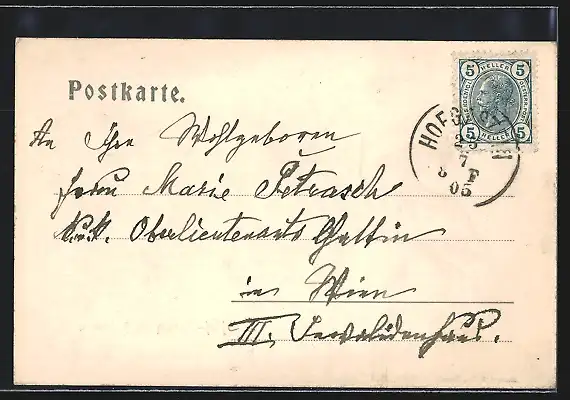 Postkarte.
5 HELLER 5
5 HELLER 5
HOFG
23
7
05
An Ihre Wohlgeboren
Frau Marie Petrasch
k.u.k. Oberlieutenants Gattin
in Wien
III. Invalidenhaus.